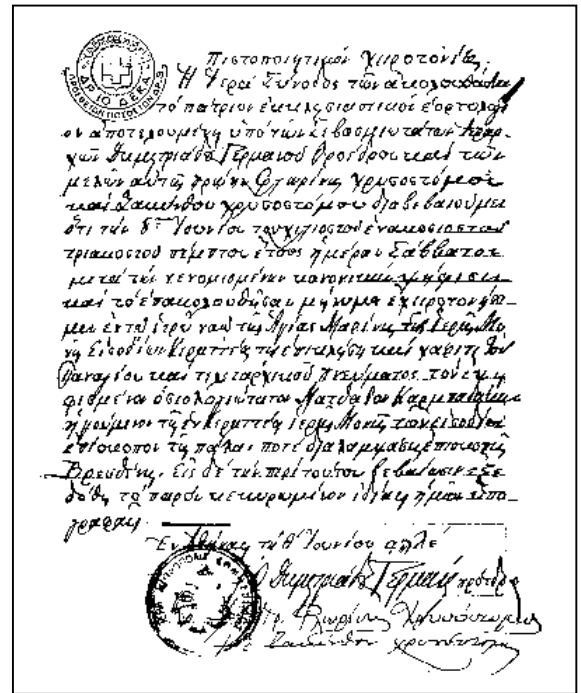 ΔΡ. 10 ΔΕΚΑ
Πιστοποιητικόν χειροτονίας
Ἡ Ἱερά Σύνοδος τῶν ἀκολουθούντων
τό πάτριον ἐκκλησιαστικόν ἑορτολόγι
ον ἀποτελουμένη ὑπό τῶν Σεβασμιωτάτων Ἱεραρ-
χῶν Δημητριάδος Γερμανοῦ Προέδρου καί τῶν
μελῶν αὐτῆς πρώην Φλωρίνης Χρυσοστόμου
καί Ζακύνθου Χρυσοστόμου διαβεβαιοῦμεν
ὅτι τήν 8ην Ἰουνίου τοῦ χιλιοστοῦ ἐνακοσιοστοῦ
τριακοστοῦ πέμπτου ἔτους ἡμέραν Σάββατον
μετά τήν νενομισμένην κανονικήν ψήφισιν
καί τό ἐπακολουθῆσαν μήνυμα ἐχειροτονήσα-
μεν ἐν τῷ ἱερῷ ναῷ τῆς Ἁγίας Μαρίνης τῆς Ἱερᾶς Μο
νῆς Εἰσοδίων Κερατέας τῇ ἐπικλήσει καί χάριτι τοῦ
Παναγίου καί τελεταρχικοῦ Πνεύματος τόν ἐψη
φισμένον ὁσιολογιώτατον Ματθαῖον Καρπαθάκην
ἡγούμενον τῆς ἐν Κερατέᾳ Ἱερᾶς Μονῆς τῶν Εἰσοδίων
ἐπίσκοπον τῆς πάλαι ποτέ διαλαμψάσης ἐπισκοπῆς
Βρεσθένης. Εἰς δέ τήν περί τούτου βεβαίωσιν ἐξε
δόθη τό παρόν κεκυρωμένον ἰδίαις ἡμῶν ὑπο-
γραφαῖς.
Ἐν Ἀθήναις τῇ 8 Ἰουνίου αϡλε
Ὁ Δημητριάδος Γερμανός πρόεδρος
Ὁ πρ. Φλωρίνης Χρυσόστομος
Ὁ Ζακύνθου Χρυσόστομος